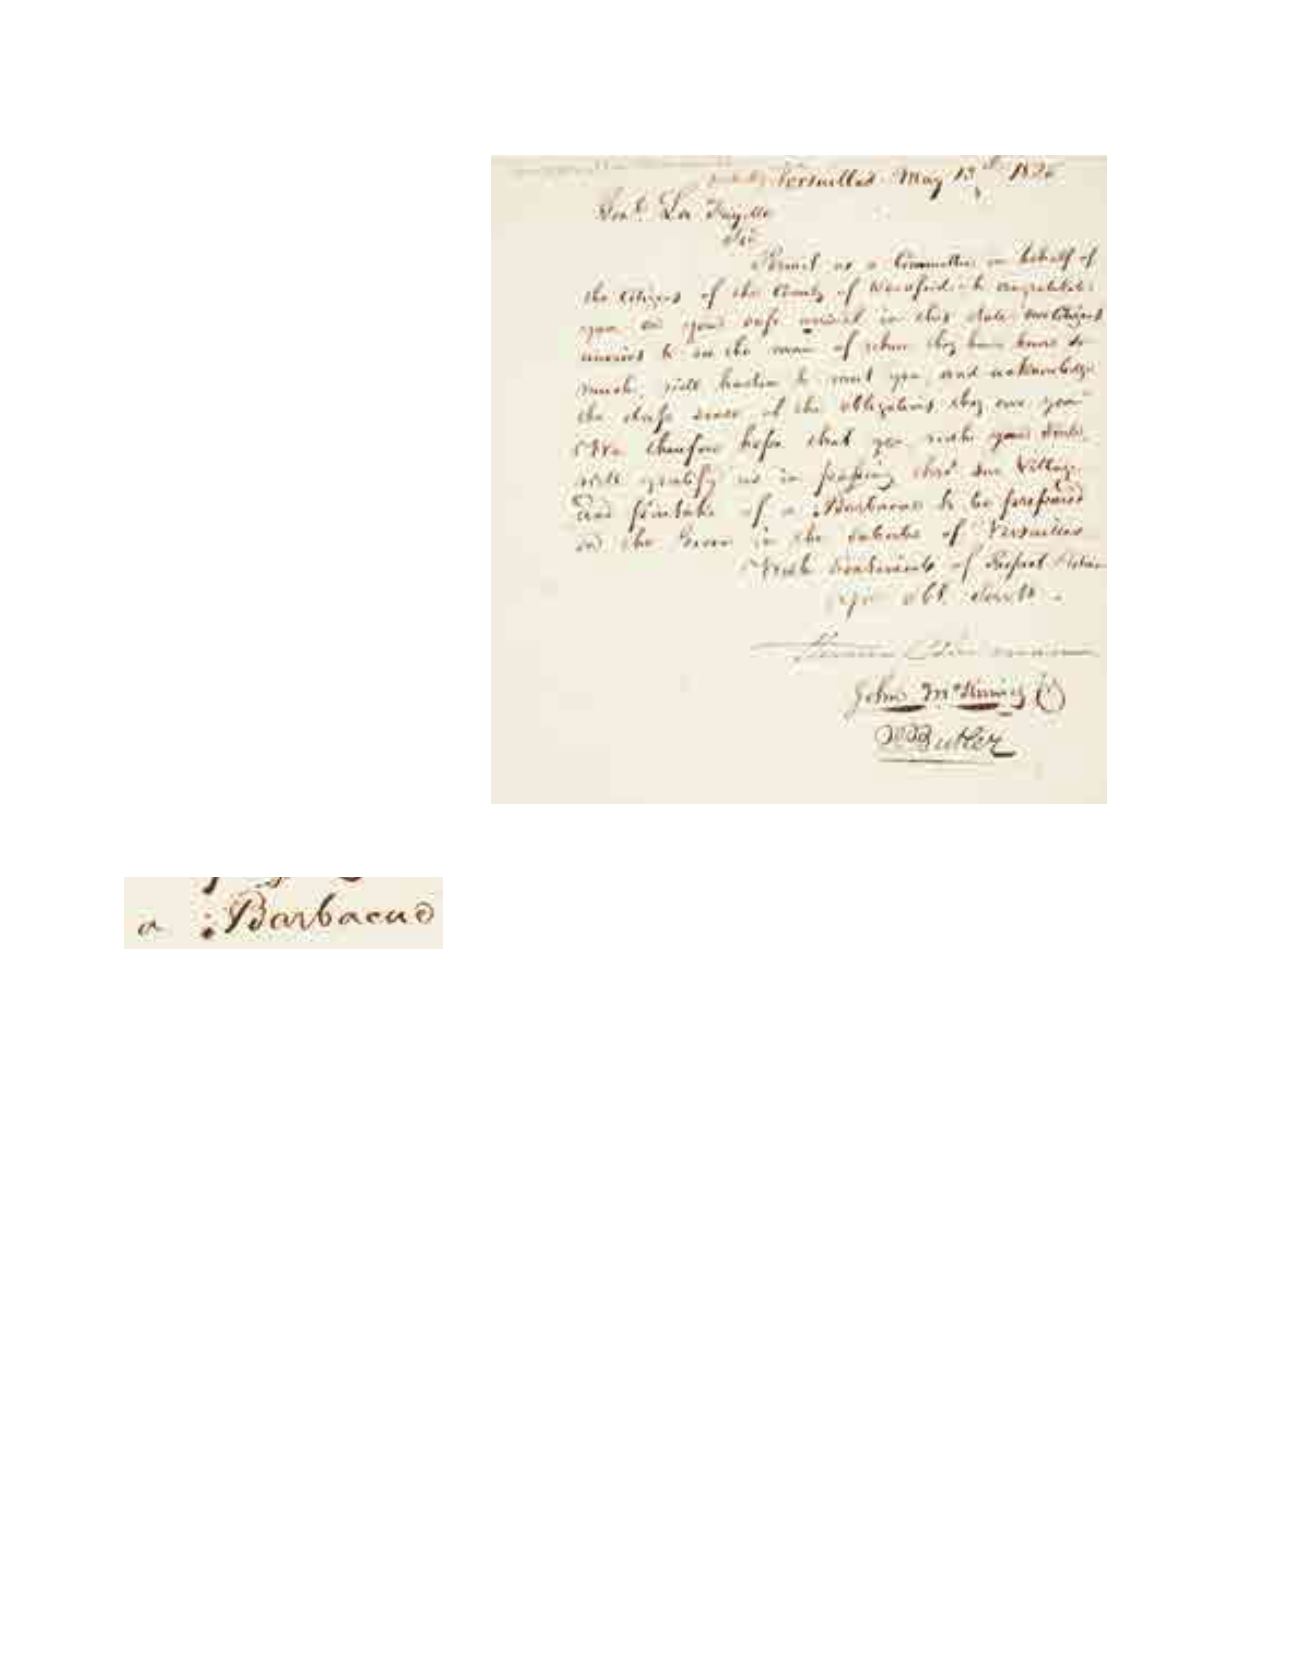 Versailles May 13th 1825
Genl. La Fayette
Sir
Permit us a Committee in behalf of
the Citizens of the County of Woodford to congratulate
you on your safe arrival in this State our Citizens
anxious to see the man of whom they have heard so
much, will hasten to meet you, and acknowledge
the deep sense of the obligations they owe you
We therefore hope that you with your Suite,
will gratify us in passing thro' our Village
and partake of a Barbacue to be prepared
on the in the suburbs of Versailles
With Sentiments of Respect
obt. Servts.
John McKinney Jr
Butler
a Barbacue